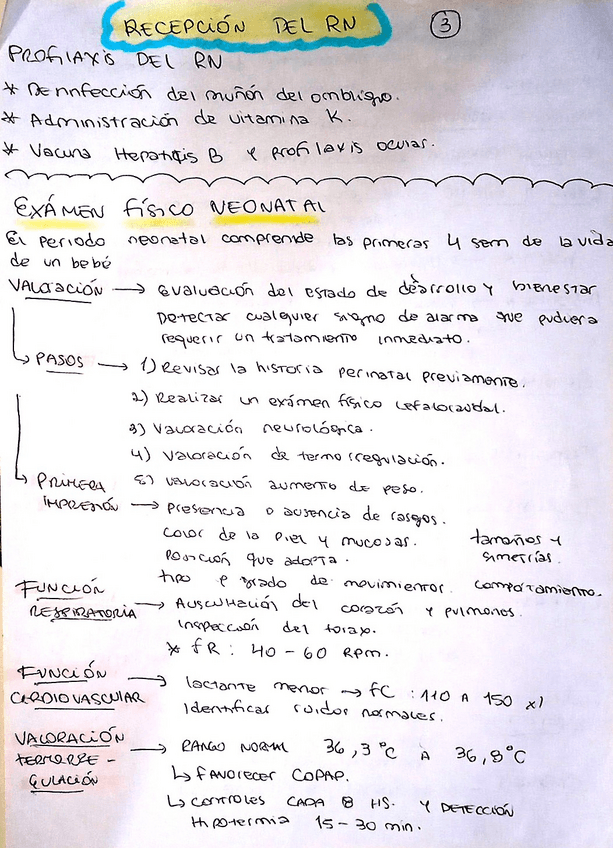 RECEPCIÓN DEL RN
3
PROFILAXIS DEL RN
* Deninfección del muñón del ombligo.
* Administración de vitamina K.
* Vacuna Hepatitis B y profilaxis ocular.
EXÁMEN FÍSICO NEONATAL
El periodo neonatal comprende las primeras 4 sem de la vida
de un bebé
VALORACIÓN → evaluación del estado de desarrollo y bienestar
Detectar cualquier signo de alarma que pudiera
requerir un tratamiento inmediato.
PASOS → 1) Revisar la historia perinatal previamente.
2) Realizar un exámen físico cefalocaudal.
3) Valoración neurológica.
4) Valoración de termorregulación.
5) valoración aumento de peso.
PRIMERA IMPRESIÓN → presencia o ausencia de rasgos.
color de la piel y mucosas. tamaños y
posición que adopta. simetrías.
tipo e grado de movimientos. comportamiento.
FUNCIÓN RESPIRATORIA → Auscultación del corazón y pulmones.
Inspección del torax.
* FR: 40-60 Rpm.
FUNCIÓN CARDIOVASCULAR → lactante menor → FC: 110 A 150 x'
Identificar ruidos normales.
VALORACIÓN TERMORRE-GULACIÓN → RANGO NORMAL 36,3°C A 36,8°C
↳ FAVORECER COPAP.
↳ CONTROLES CADA 8 HS. Y DETECCIÓN
Hipotermia 15-30 min.